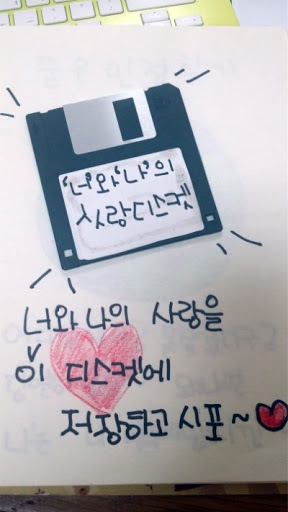 '너'와'나'의
사랑디스켓
너와 나의 사랑을
이 디스켓에
저장하고 시포~